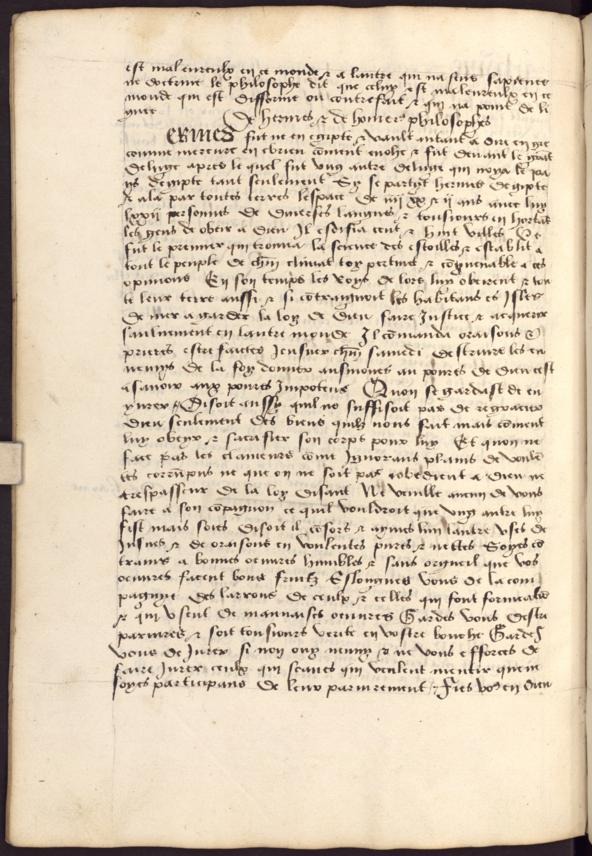 est maleureulx en ce monde & a lautre qui na sens sapience
ne doctrine le philosophe dit que celuy est maleureulx en ce
monde qui est difforme ou contrefait & qui na point de li
gnee
De hermes & de homer philosophes
ERMES fut ne en egipte & vault autant a dire en grec
comme mercure en ebrieu coment enohc & fut devant le grant
deluge apres le quel fut ung autre deluge qui noya le pa
ys degipte tant seulement Sy se partyt hermes degipte
& ala par toutes terres lespace de iiij xx & ii ans avec luy
lxxii personnes de diverses langues & tousiours en hortat
les gens de obeir a dieu Il edifia cent & huit villes
fut le premier qui trouva la science des estoilles & establit a
tout le peuple de chun climat loy pertinet & convenable a ces
opinions En son temps les roys de lors luy obeirent & tou
te leur terre aussi & si contraignoit les habitans es isles
de mer a garder la loy de dieu faire justice & acquerir
sauluement en lautre monde Il comanda oraisons &
prieres estre faictes jeusner chun samedi destruire les en
nemys de la foy donner aumosnes au povres de dieu cest
asavoir aux povres impotens Quon se gardast de en
yurer Disoit aussy quil ne suffisoit pas de regracier
dieu seulement des biens quilz nous fait mais coment
luy obeir & sacrifier son corps pour luy Et quon ne
face pas les clameurs come ignorans plains de voulen
tes corrupus ne que on ne soit pas inobedient a dieu ne
trespasseur de la loy disant Ne veulle aucun de vous
faire a son compagnon ce quil vouldroit que ung autre luy
fist mais soies disoit il & aymes lun lautre uses de
jeusnes & de oraisons en voulentes pures & nettes Soyes co
trains a bonnes oeuvres humbles & sans orgueil que vos
oeuvres facent bons fruitz Eslongnes vous de la com
pagnye des larrons de ceulx & celles qui font fornicatio
& qui usent de mauvaises oeuvres Gardes vous destre
parjures & soit tousiours verite en vostre bouche Gardes
vous de jurer si non ouy nenny & ne vous efforces de
faire jurer ceulx qui scaves qui veulent mentir quem
soyes participans de leur parjurement Fies vous en dieu